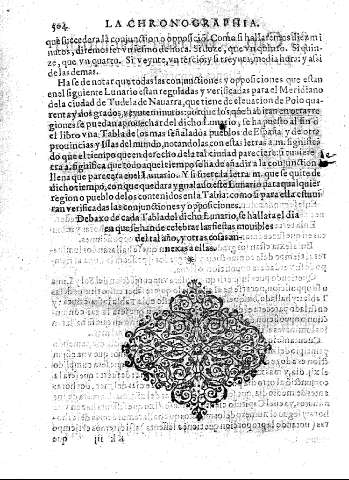 504 LA CHRONOGRAPHIA.
que succedera la conjunction o opposició. Como si hallasemos diez mi
nutos, diremos ser vn sesmo de hora. Si doze, que vn quinto. Si quin-
ze, que vn quarto. Si veynte, vn tercio; si treynta, media hora: y assi
de las demas.
Hase de notar que todas las conjunctiones y opposiciones que estan
en el siguiente Lunario estan reguladas y verificadas para el Meridiano
de la ciudad de Tudela de Nauarra, que tiene de eleuacion de Polo quaren
ta y dos grados, y minutos: que los que habitan en otras re
giones se puedan aprouechar del dicho Lunario, se ha puesto al fin
el libro vna Tabla de los mas señalados pueblos de España, y de otras
prouincias y Islas del mundo, notandolas con estas letras a. m. signifi
do que el tiempo que en derecho de la tal ciudad pareciere, si
era a. significa que todo aquel tiempo se ha de añadir a la conjunction
llena que pareciera en el Lunario. Y si fuere la letra m. que se quite de
dicho tiempo, con que quedara y gualado este Lunario para qualquier
region o pueblo de los contenidos en la Tabla: como si para ella estuuie
ran verificadas las conjunctiones y opposiciones.
Debaxo de cada Tabla del dicho Lunario, se hallara el dia
en que se han de celebrar las fiestas mouibles
del tal año, y otras cosas an-
nexas a ellas.